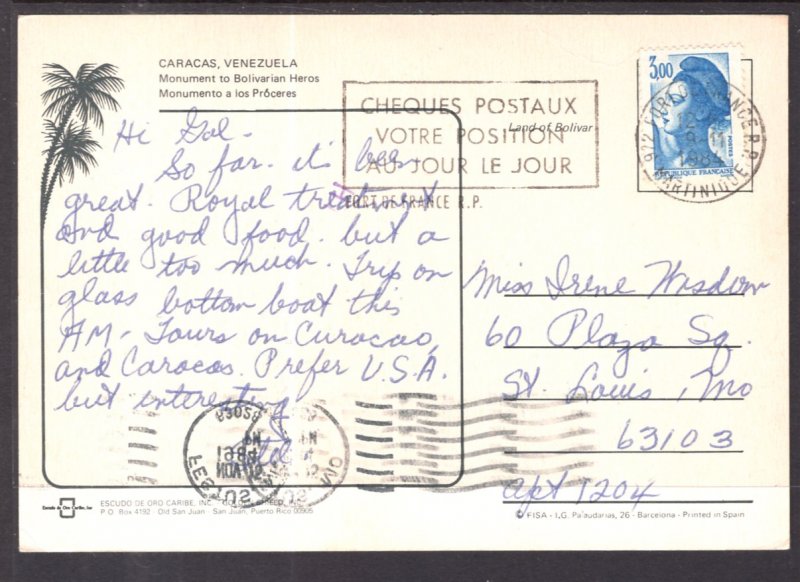 CARACAS, VENEZUELA
Monument to Bolivarian Heros
Monumento a los Próceres
CHEQUES POSTAUX
VOTRE POSITION
AU JOUR LE JOUR
FORT DE FRANCE R.P.
Land of Bolivar
3,00
POSTES
REPUBLIQUE FRANCAISE
922 FORT DE FRANCE R.P.
1984
MARTINIQUE
Hi Gal -
So far - it's been
great. Royal treatment
and good food - but a
little too much. Trip on
glass bottom boat this
AM - Tours on Curacao,
and Caracas. Prefer U.S.A.
but interesting
Miss Irene Wisdom
60 Plaza Sq.
St. Louis, Mo
63103
Apt 1204
Escudo de Oro Caribe, Inc
ESCUDO DE ORO CARIBE, INC. - GOLDEN SHIELD, INC.
P.O. Box 4192 - Old San Juan - San Juan, Puerto Rico 00905
© FISA - I.G. Palaudarias, 26 - Barcelona - Printed in Spain